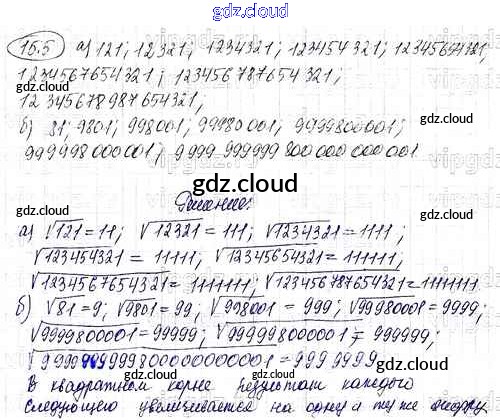 gdz.cloud
15.5 а) 121; 12321; 1234321; 123454321; 12345654321;
1234567654321; 123456787654321;
12345678987654321;
gdz.cloud gdz.cloud
б) 81; 9801; 998001; 99980001; 9999800001;
999998000001; 9999999999800000000001
gdz.cloud
Решение:
а) √121 = 11; √12321 = 111; √1234321 = 1111;
√123454321 = 11111; √12345654321 = 111111;
√1234567654321 = 1111111; √123456787654321 = 11111111.
б) √81 = 9; √9801 = 99; √998001 = 999; √99980001 = 9999;
√9999800001 = 99999; √999998000001 = 999999;
gdz.cloud gdz.cloud
В квадратном корне результат каждого
следующего увеличивается на одну и ту же цифру
gdz.cloud